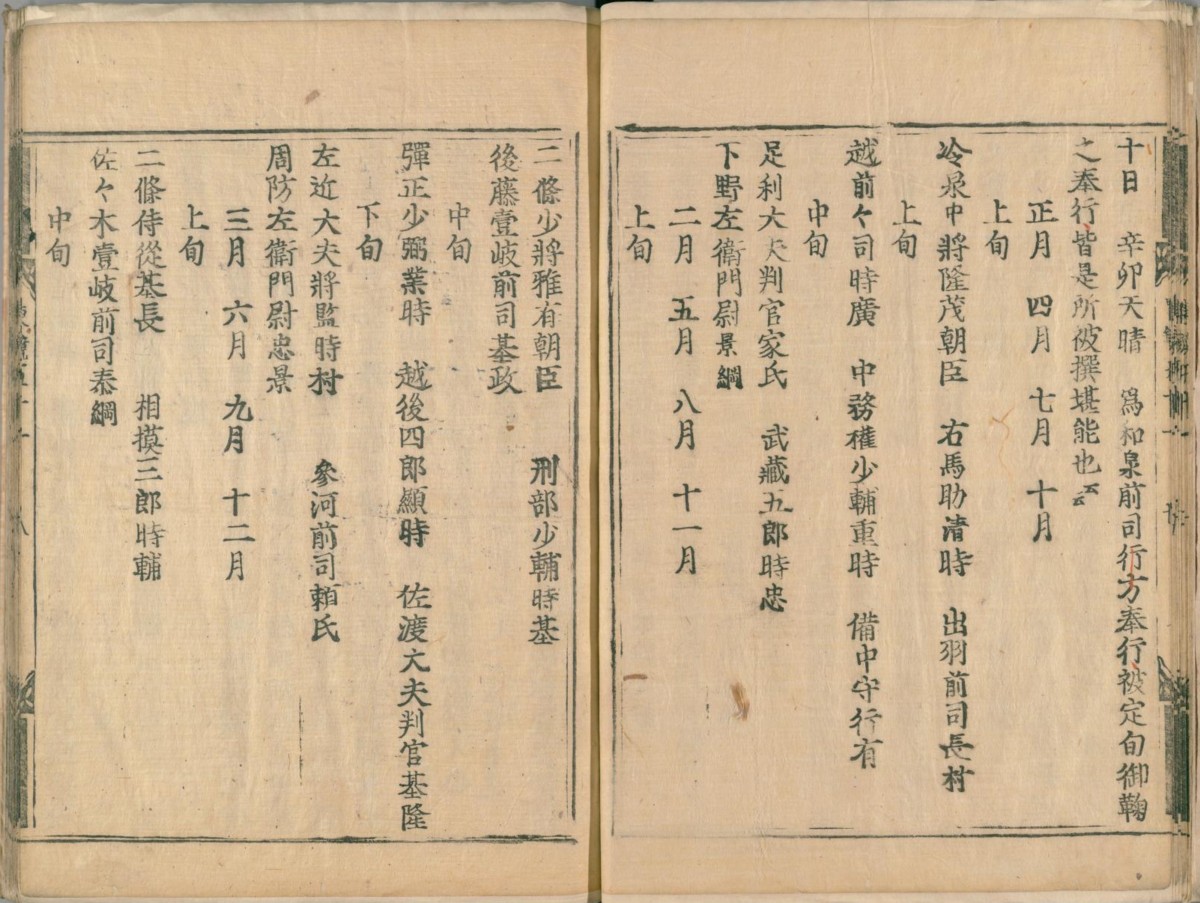 十日 辛卯天晴 爲和泉前司行方奉行被定旬御鞠
之奉行皆是所被撰堪能也云云
正月 四月 七月 十月
上旬
冷泉中將隆茂朝臣 右馬助清時 出羽前司長村
上旬
越前々司時廣 中務權少輔重時 備中守行有
中旬
足利大夫判官家氏 武藏五郎時忠
下野左衛門尉景綱
二月 五月 八月 十一月
上旬
二條少將雅有朝臣 刑部少輔時基
後藤壹岐前司基政
中旬
彈正少弼業時 越後四郎顯時 佐渡大夫判官基隆
下旬
左近大夫將監時村 參河前司頼氏
周防左衛門尉忠景
三月 六月 九月 十二月
上旬
二條侍從基長 相摸三郎時輔
佐々木壹岐前司泰綱
中旬